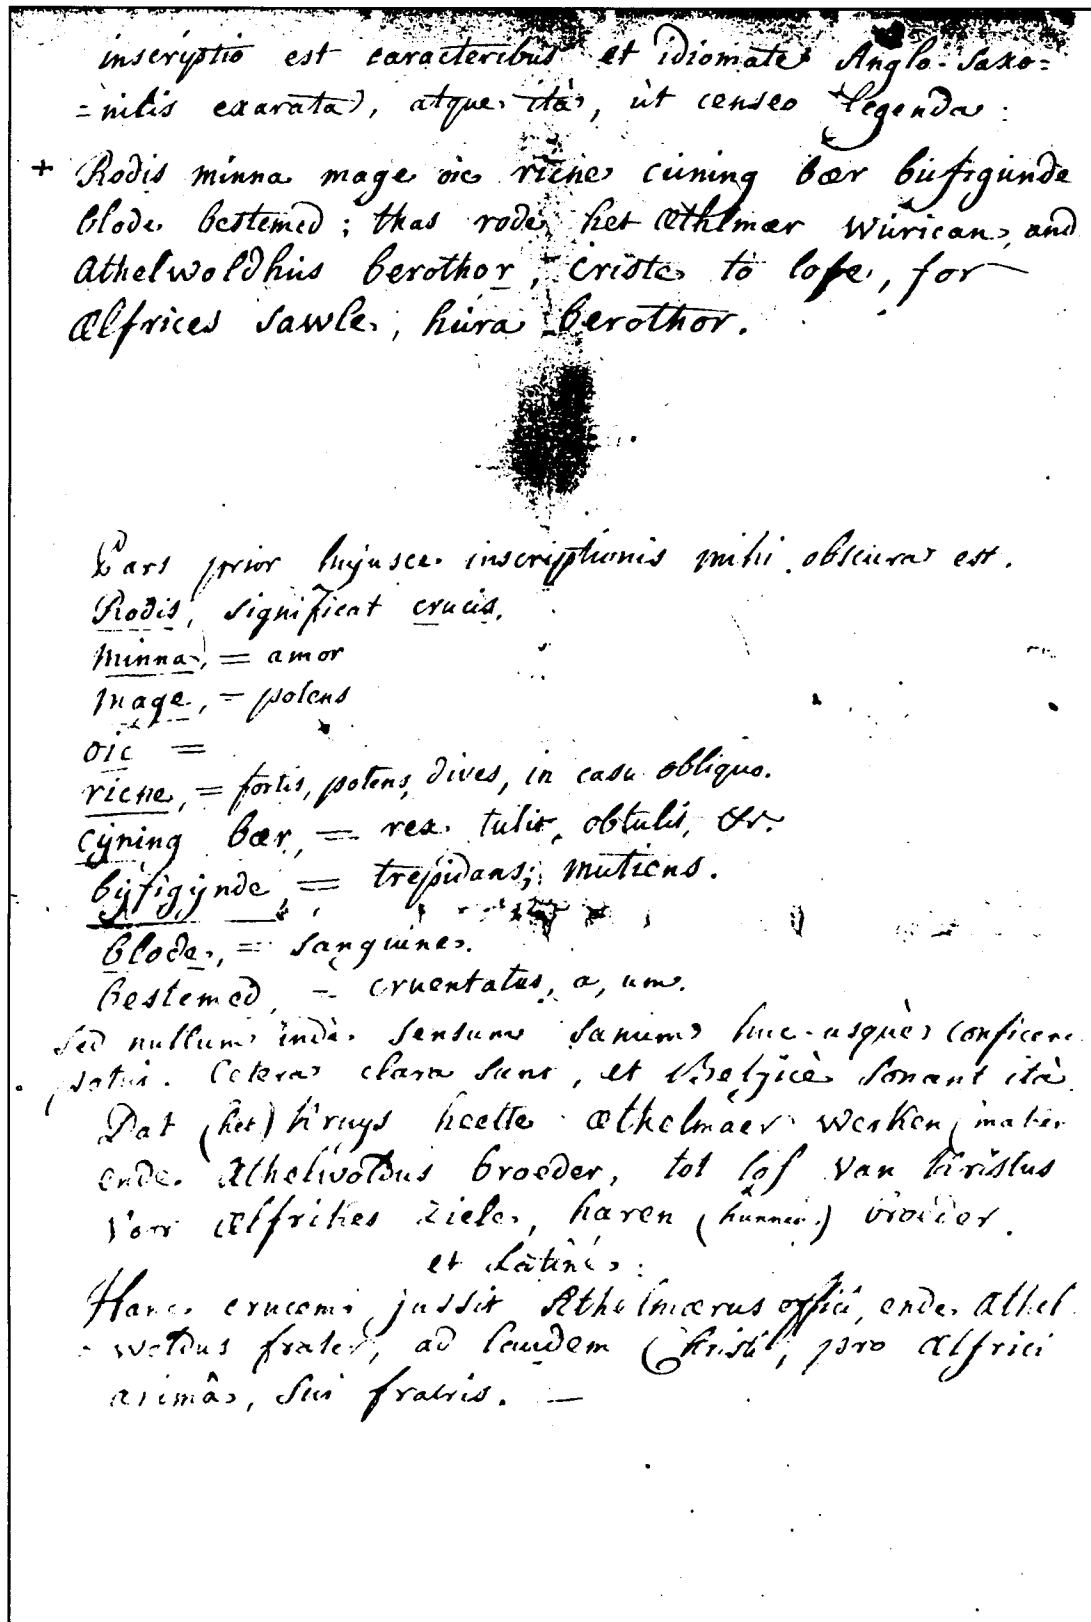 inscriptio est caracteribus et idiomate Anglo-Saxo=
=nitis exarata, atque ità, ùt censeo legenda:
+ Rodis minna mage oic riene cùning bær bùfigùnde
blode bestemed; thas rode het Æthlmær wùrican, and
Athelwoldhùs berothor, criste to lofe, for
Ælfrices sawle, hùra berothor.
Pars prior hujusce inscriptionis mihi obscura est.
Rodis, significat crucis.
minna, = amor
mage, = potens
oic =
riene, = fortis, potens, dives, in casu obliquo.
cÿning bær, = rex tulit, obtulit, &c.
bÿfigÿnde, = trepidans; muticns.
blode, = sanguine.
bestemed, = cruentatus, a, um.
sed nullum indè sensum sanum huc-usquè conficere
potui. Cetera clara sunt, et Belgicè sonant ità
Dat (het) kruys heette Æthelmaer werken, maken
ende Athelwoldus broeder, tot lof van Kristus
voor Ælfrikes ziele, haren (hunnen) broeder.
et Latinè:
Hanc crucem jussit Athelmærus effici, ende Athel
=woldus frater, ad laudem Christi, pro Ælfrici
animâ, sui fratris. —